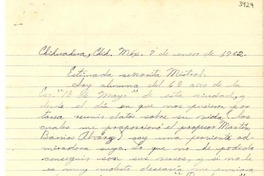 3929
Chihuahua, Chih. Méx. 8 de enero de 1952.
Estimada señorita Mistral:
Soy alumna del 6º año de la
Esc. "18 de Mayo" de esta ciudad, y
desde el día en que nos pusieron por
tarea reunir datos sobre su vida, los
cuales me proporcionó el profesor Martín
Barrio Abraz soy una ferviente ad-
miradora suya, lo que no he podido
conseguir son sus versos, y si no le
es muy molesto desearía me enviara